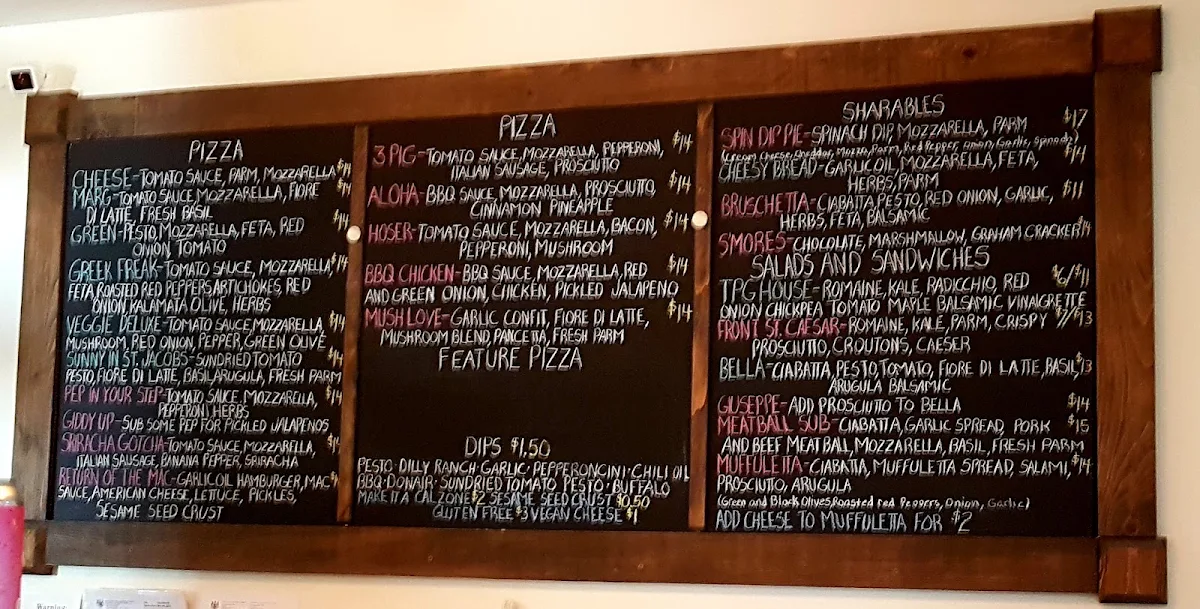 PIZZA
CHEESE-TOMATO SAUCE, PARM, MOZZARELLA $14
MARG-TOMATO SAUCE, MOZZARELLA, FIORE $14
DI LATTE, FRESH BASIL
GREEN-PESTO, MOZZARELLA, FETA, RED $14
ONION, TOMATO
GREEK FREAK-TOMATO SAUCE, MOZZARELLA, $14
FETA, ROASTED RED PEPPERS, ARTICHOKES, RED
ONION, KALAMATA OLIVE, HERBS
VEGGIE DELUXE-TOMATO SAUCE, MOZZARELLA $14
MUSHROOM, RED ONION, PEPPER, GREEN OLIVE
SUNNY IN ST. JACOBS-SUNDRIED TOMATO $14
PESTO, FIORE DI LATTE, BASIL, ARUGULA, FRESH PARM
PEP IN YOUR STEP-TOMATO SAUCE, MOZZARELLA, $14
PEPPERONI, HERBS
GIDDY UP-SUB SOME PEP FOR PICKLED JALAPENOS
SRIRACHA GOTCHA-TOMATO SAUCE, MOZZARELLA,
ITALIAN SAUSAGE, BANANA PEPPER, SRIRACHA
RETURN OF THE MAC-GARLIC OIL, HAMBURGER, MAC
SAUCE, AMERICAN CHEESE, LETTUCE, PICKLES,
SESAME SEED CRUST
PIZZA
3 PIG-TOMATO SAUCE, MOZZARELLA, PEPPERONI, $14
ITALIAN SAUSAGE, PROSCIUTTO
ALOHA-BBQ SAUCE, MOZZARELLA, PROSCIUTTO, $14
CINNAMON PINEAPPLE
HOSER-TOMATO SAUCE, MOZZARELLA, BACON, $14
PEPPERONI, MUSHROOM
BBQ CHICKEN-BBQ SAUCE, MOZZARELLA, RED $14
AND GREEN ONION, CHICKEN, PICKLED JALAPENO
MUSH LOVE-GARLIC CONFIT, FIORE DI LATTE, $14
MUSHROOM BLEND, PANCETTA, FRESH PARM
FEATURE PIZZA
DIPS $1.50
PESTO·DILLY RANCH·GARLIC·PEPPERONCINI·CHILI OIL
BBQ·DONAIR·SUNDRIED TOMATO PESTO·BUFFALO
MAKE IT A CALZONE $2 SESAME SEED CRUST $0.50
GLUTEN FREE $3 VEGAN CHEESE $1
SHARABLES
SPIN DIP PIE-SPINACH DIP, MOZZARELLA, PARM $17
(Cream Cheese, Cheddar, Mozza, Parm, Red Pepper, Onion, Garlic, Spinach)
CHEESY BREAD-GARLIC OIL, MOZZARELLA, FETA, $14
HERBS, PARM
BRUSCHETTA-CIABATTA, PESTO, RED ONION, GARLIC, $11
HERBS, FETA, BALSAMIC
S'MORES-CHOCOLATE, MARSHMALLOW, GRAHAM CRACKER
SALADS AND SANDWICHES
TPG HOUSE-ROMAINE, KALE, RADICCHIO, RED $6/$11
ONION CHICKPEA TOMATO MAPLE BALSAMIC VINAIGRETTE
FRONT ST. CAESAR-ROMAINE, KALE, PARM, CRISPY $7/$13
PROSCIUTTO, CROUTONS, CAESER
BELLA-CIABATTA, PESTO, TOMATO, FIORE DI LATTE, BASIL, $13
ARUGULA BALSAMIC
GIUSEPPE-ADD PROSCIUTTO TO BELLA $14
MEATBALL SUB-CIABATTA, GARLIC SPREAD, PORK $15
AND BEEF MEATBALL, MOZZARELLA, BASIL, FRESH PARM
MUFFULETTA-CIABATTA, MUFFULETTA SPREAD, SALAMI, $14
PROSCIUTTO, ARUGULA
(Green and Black Olives, Roasted red Peppers, Onion, Garlic)
ADD CHEESE TO MUFFULETTA FOR $2
Warning